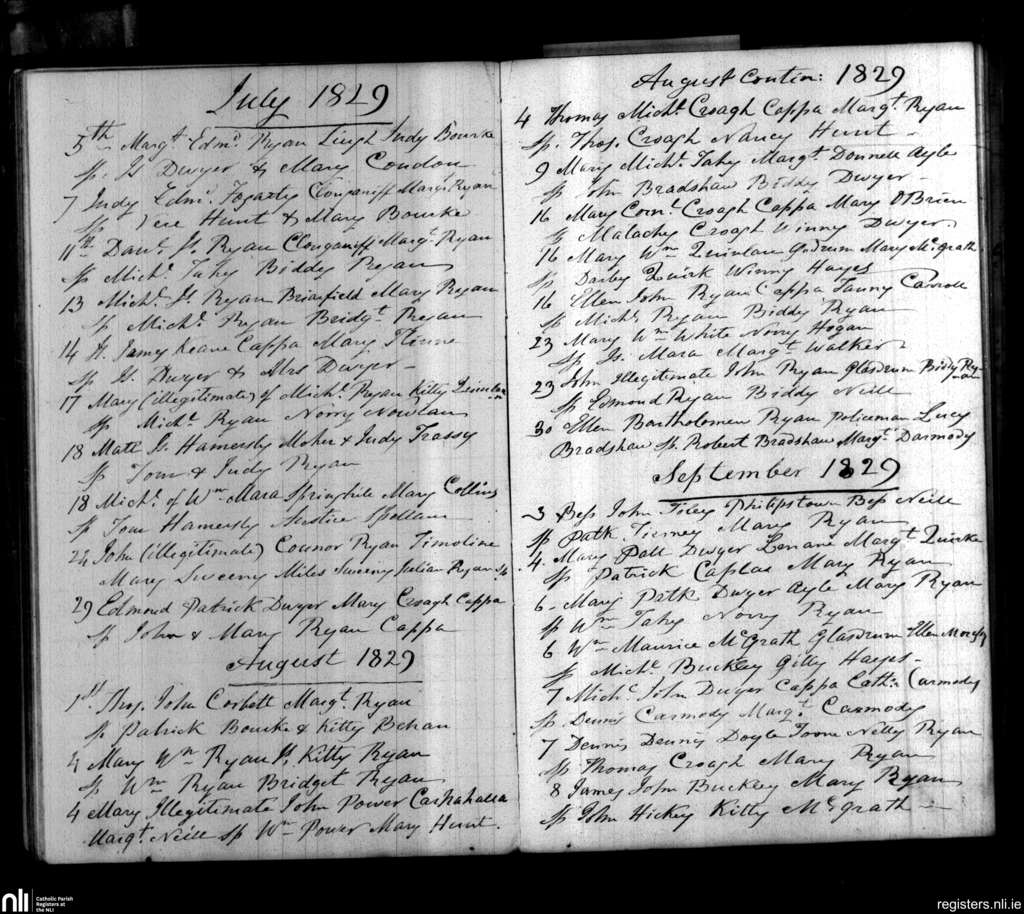 July 1829
5th Margt. Edmd. Ryan Judy Bourke
Sp. Js Dwyer & Mary Condon
7 Judy Edmd. Fogarty Clonganiff Margt. Ryan
Sp Hunt & Mary Bourke
11th Danl. Js. Ryan Clonganiff Margt. Ryan
Sp Michl. Fahy Biddy Ryan
13 Michl. Js Ryan Brianfield Mary Ryan
Sp Michl. Ryan Bridgt. Ryan
14 James Keane Cappa Mary
Sp Js. Dwyer & Mrs Dwyer
17 Mary (illegitimate) of Michl. Ryan Kitty Quinlan
Sp Michl. Ryan Norry Nowlan
18 Matt Js. Hamersly Moher & Judy Trassy
Sp Tom & Judy Ryan
18 Michl. of Wm Mara Springhile Mary Collins
Sp Tom Hamersly
24 John (illegitimate) Connor Ryan Timoline
Mary Sweeny Miles Sweeny Julian Ryan Sp
29 Edmond Patrick Dwyer Mary Creagh Cappa
Sp John & Mary Ryan Cappa
August 1829
1st Thos. John Corbett Margt. Ryan
Sp Patrick Bourke & Kitty Behan
4 Mary Wm Ryan Kitty Ryan
Sp Wm Ryan Bridget Ryan
4 Mary Illegitimate John Power
Margt. Neill Sp Wm Power Mary Hunt.
August Contin: 1829
4 Thomas Michl. Creagh Cappa Margt. Ryan
Sp. Thos. Creagh Nancy Hunt
9 Mary Michl. Fahy Margt. Donnell Ayle
Sp John Bradshaw Biddy Dwyer
16 Mary Cornl. Creagh Cappa Mary O'Brien
Sp Malachy Creagh Winny Dwyer
16 Mary Wm Quinlan Mary McGrath
Sp Darby Quirk Winny Hayes
16 Ellen John Ryan Cappa Fanny Carroll
Sp Michl. Ryan Biddy Ryan
23 Mary Wm White Norry Hogan
Sp Js. Mara Margt. Walker
23 John Illegitimate John Ryan Glasdrum Biddy Ryan
Sp Edmond Ryan Biddy Neill
30 Ellen Bartholomew Ryan Policeman Lucy
Bradshaw Sp Robert Bradshaw Margt. Darmody
September 1829
3 Bess John Philipstown Bess Neill
Sp Patk Tierney Mary Ryan
4. Mary Patt Dwyer Lenane Margt Quirke
Sp Patrick Caplas Mary Ryan
6 Mary Patk Dwyer Ayle Mary Ryan
Sp Wm Fahy Norry Ryan
6 Wm Maurice McGrath Glasdrum Ellen
Sp Michl. Buckley Gitty Hayes
7 Michl. John Dwyer Cappa Cath: Carmody
Sp. Dennis Carmody Margt. Carmody
7 Dennis Dennis Doyle Toom Nelly Ryan
Sp Thomas Creagh Mary Ryan
8 James John Buckley Mary Ryan
Sp John Hickey Kitty McGrath
nli
Catholic Parish
Registers at
the NLI
registers.nli.ie